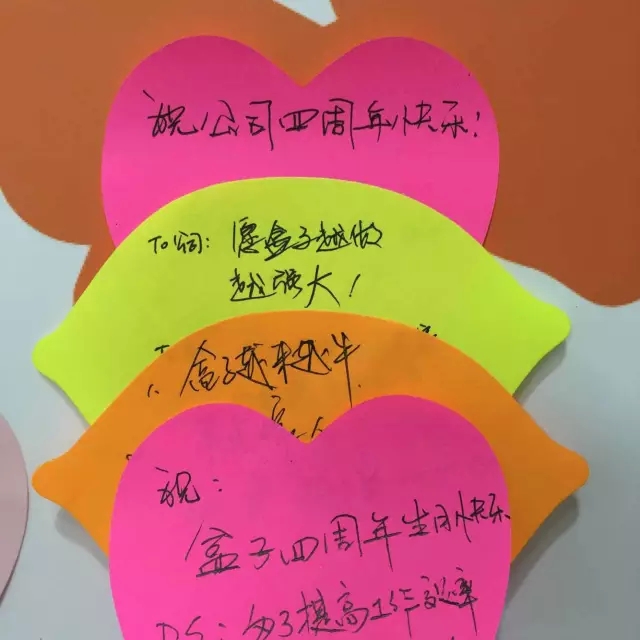 祝公司四周年快乐!
To公司: 愿盒子越做
越强大!
1. 盒子越来越牛
祝:
盒子四周年生日快乐
PS: 为了提高工作效率